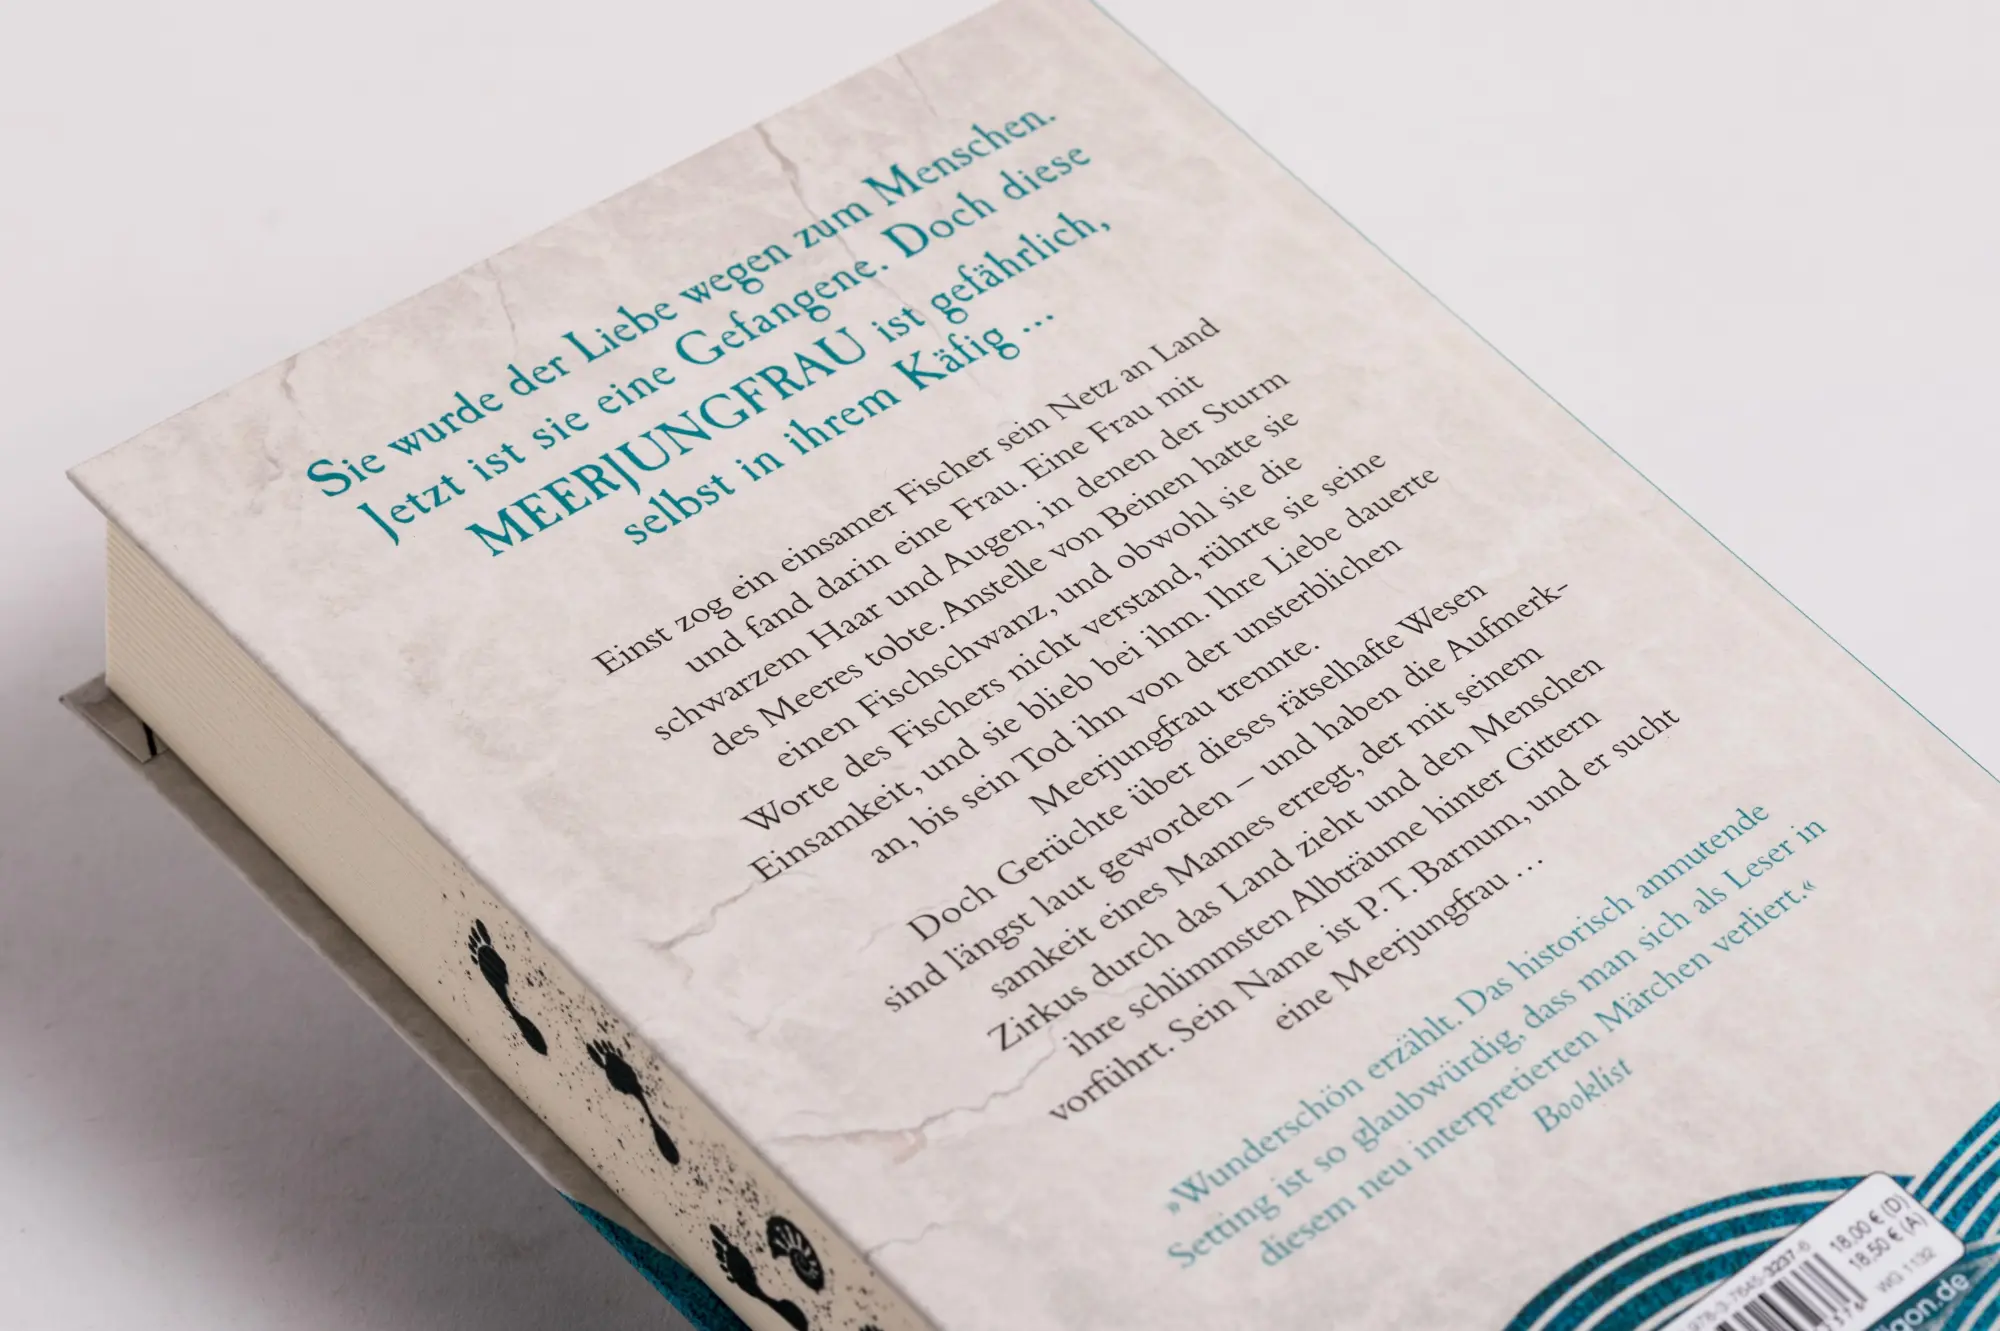 Sie wurde der Liebe wegen zum Menschen.
Jetzt ist sie eine Gefangene. Doch diese
MEERJUNGFRAU ist gefährlich,
selbst in ihrem Käfig ...
Einst zog ein einsamer Fischer sein Netz an Land
und fand darin eine Frau. Eine Frau mit
schwarzem Haar und Augen, in denen der Sturm
des Meeres tobte. Anstelle von Beinen hatte sie
einen Fischschwanz, und obwohl sie die
Worte des Fischers nicht verstand, rührte sie seine
Einsamkeit, und sie blieb bei ihm. Ihre Liebe dauerte
an, bis sein Tod ihn von der unsterblichen
Meerjungfrau trennte.
Doch Gerüchte über dieses rätselhafte Wesen
sind längst laut geworden – und haben die Aufmerk-
samkeit eines Mannes erregt, der mit seinem
Zirkus durch das Land zieht und den Menschen
ihre schlimmsten Albträume hinter Gittern
vorführt. Sein Name ist P. T. Barnum, und er sucht
eine Meerjungfrau ...
»Wunderschön erzählt. Das historisch anmutende
Setting ist so glaubwürdig, dass man sich als Leser in
diesem neu interpretierten Märchen verliert.«
Booklist
978-3-7645-3237-6
18,00 € (D)
18,50 € (A)
WG 1132